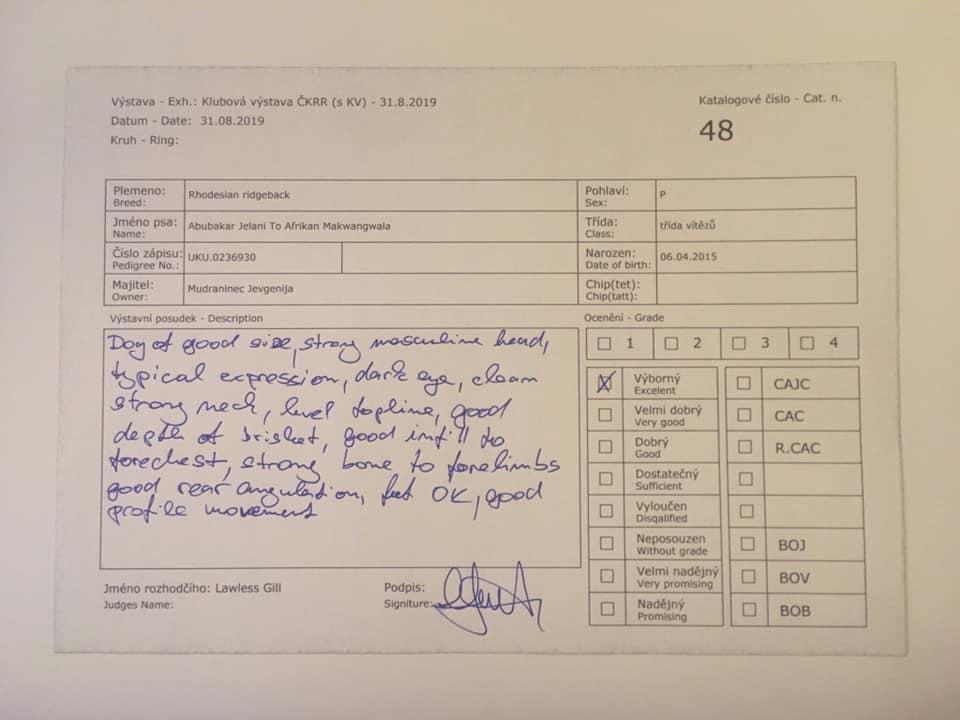 Výstava - Exh.: Klubová výstava ČKRR (s KV) - 31.8.2019
Datum - Date: 31.08.2019
Kruh - Ring:
Katalogové číslo - Cat. n.
48
Plemeno:
Breed:
Rhodesian ridgeback
Pohlaví:
Sex:
P
Jméno psa:
Name:
Abubakar Jelani To Afrikan Makwangwala
Třída:
Class:
třída vítězů
Číslo zápisu:
Pedigree No.:
UKU.0236930
Narozen:
Date of birth:
06.04.2015
Majitel:
Owner:
Mudraninec Jevgenija
Chip(tet):
Chip(tatt):
Výstavní posudek - Description
Dog of good size, strong masculine head,
typical expression, dark eye, clean
strong neck, level topline, good
depth of brisket, good infill to
forechest, strong bone to forelimbs
good rear angulation, feet OK, good
profile movement
Ocenění - Grade
1 2 3 4
Výborný
Excelent
CAJC
Velmi dobrý
Very good
CAC
Dobrý
Good
R.CAC
Dostatečný
Sufficient
Vyloučen
Disqalified
Neposouzen
Without grade
BOJ
Velmi nadějný
Very promising
BOV
Nadějný
Promising
BOB
Jméno rozhodčího: Lawless Gill
Judges Name:
Podpis:
Signiture: